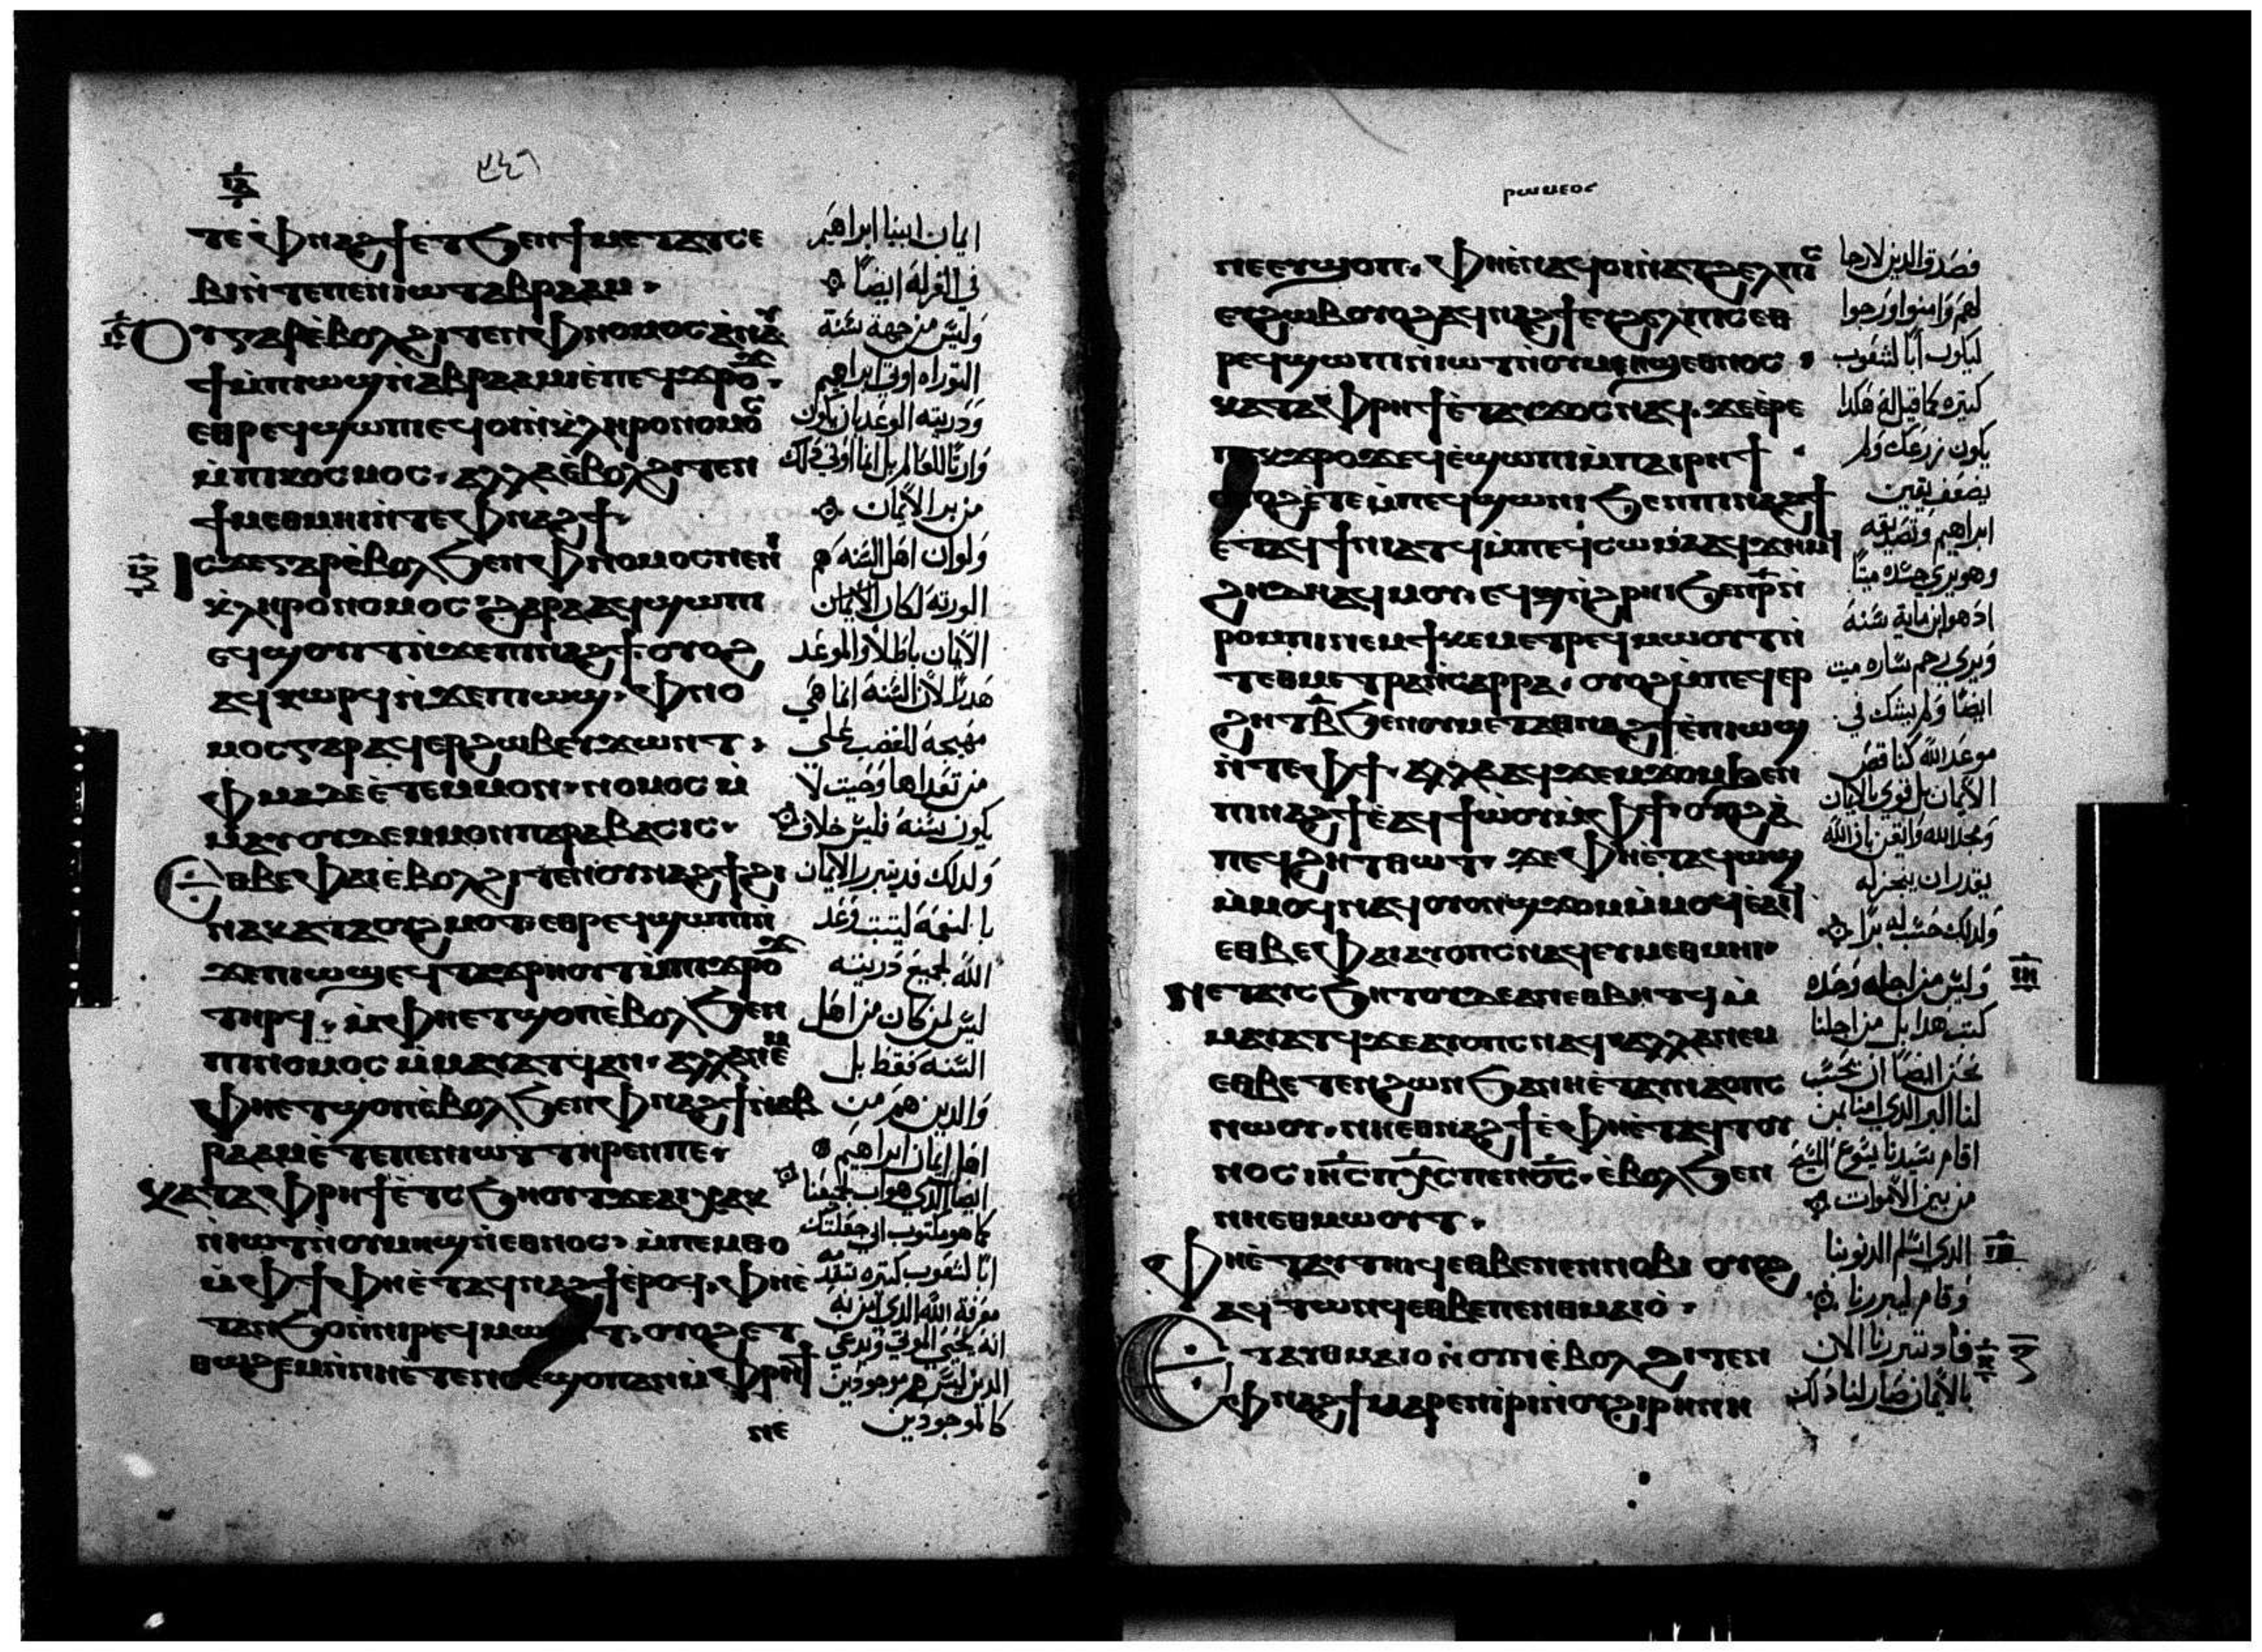 ⲧⲉ ⲫⲛⲁϩϯ ⲉⲧϧⲉⲛ ϯⲙⲉⲧⲁⲧⲥⲉ
ⲃⲓ ⲛ̀ⲧⲉ ⲡⲉⲛⲓⲱⲧ ⲁⲃⲣⲁⲁⲙ
ⲟⲩⲅⲁⲣ ⲉ̀ⲃⲟⲗ ϩⲓⲧⲉⲛ ⲫⲛⲟⲙⲟⲥ ⲁⲛ ⲁ̀
ϯ ⲙ̀ⲡⲓⲱϣ ⲛ̀ⲁⲃⲣⲁⲁⲙ ⲓⲉ ⲡⲉϥϫⲣⲟϫ
ⲉⲑⲣⲉϥϣⲱⲡⲓ ⲉϥⲟⲓ ⲛ̀ⲕ̀ⲗⲏⲣⲟⲛⲟⲙⲟⲥ
ⲙ̀ⲡⲓⲕⲟⲥⲙⲟⲥ ⲁⲗⲗⲁ ⲉ̀ⲃⲟⲗ ϩⲓⲧⲉⲛ
ϯⲙⲉⲑⲙⲏⲓ ⲛ̀ⲧⲉ ⲫⲛⲁϩϯ
ⲓⲥϫⲉ ⲅⲁⲣ ⲉ̀ⲃⲟⲗ ϧⲉⲛ ⲫⲛⲟⲙⲟⲥ ⲡⲉ ⲛⲓ
ⲕ̀ⲗⲏⲣⲟⲛⲟⲙⲟⲥ ϩⲁⲣⲁ ⲁϥϣⲱⲡⲓ
ⲉϥϣⲟⲩⲓⲧ ⲛ̀ϫⲉ ⲡⲓⲛⲁϩϯ ⲟⲩⲟϩ
ⲁϥⲕⲱⲣϥ ⲛ̀ϫⲉ ⲡⲓⲱϣ ⲫⲛⲟ
ⲙⲟⲥ ⲅⲁⲣ ⲁϥⲉⲣϩⲱⲃ ⲉⲩϫⲱⲛⲧ
ⲫⲙⲁ ⲇⲉ ⲉ̀ⲧⲉ ⲙⲙⲟⲛ ⲛⲟⲙⲟⲥ ⲙ̀
ⲙⲁⲩ ⲟⲩⲇⲉ ⲙⲙⲟⲛ ⲡⲁⲣⲁⲃⲁⲥⲓⲥ
ⲉⲑⲃⲉ ⲫⲁⲓ ⲉ̀ⲃⲟⲗ ϩⲓⲧⲉⲛ ⲟⲩⲛⲁϩϯ ϩⲓ
ⲛⲁ ⲕⲁⲧⲁ ⲟⲩϩⲙⲟⲧ ⲉⲑⲣⲉϥϣⲱⲡⲓ ⲛ̀
ϫⲉ ⲡⲓⲱϣ ⲉϥⲧⲁϫⲣⲏⲟⲩⲧ ⲙ̀ⲡⲓϫⲣⲟϫ
ⲧⲏⲣϥ ⲙ̀ⲫⲏ ⲉⲧϣⲟⲡ ⲉ̀ⲃⲟⲗ ϧⲉⲛ
ⲡⲓⲛⲟⲙⲟⲥ ⲙ̀ⲙⲁⲩⲁⲧϥ ⲁⲛ ⲁⲗⲗⲁ ⲛⲉⲙ
ⲫⲏ ⲉⲧϣⲟⲡ ⲉ̀ⲃⲟⲗ ϧⲉⲛ ⲫⲛⲁϩϯ ⲛ̀ⲁⲃ
ⲣⲁⲁⲙ ⲉ̀ⲧⲉ ⲡⲉⲛⲓⲱⲧ ⲧⲏⲣⲉⲛ ⲡⲉ
ⲕⲁⲧⲁ ⲫⲣⲏϯ ⲉ̀ⲧⲥϧⲏⲟⲩⲧ ϫⲉ ⲁⲓⲭⲁⲕ
ⲛ̀ⲓⲱⲧ ⲛ̀ⲟⲩⲙⲏϣ ⲛ̀ⲉⲑⲛⲟⲥ ⲙ̀ⲡⲉⲙⲑⲟ
ⲙ̀ⲫϯ ⲫⲏ ⲉ̀ⲧⲁϥⲛⲁϩϯ ⲉ̀ⲣⲟϥ ⲫⲏ ⲉ̀
ⲧⲁⲛϧⲟ ⲛ̀ⲛⲓⲣⲉϥⲙⲱⲟⲩⲧ ⲟⲩⲟϩ ⲉⲧ
ⲑⲱϩⲉⲙ ⲛ̀ⲛⲏ ⲉ̀ⲧⲉ ⲛⲥⲉϣⲟⲡ ⲁⲛ ⲙ̀ⲫⲣⲏϯ
ⲛⲉ
ايمان ابينا ابراهيم
في الغرله ايضًا
وليس من جهة سنة
التوراه اوتي ابراهيم
وذريته الوعد بان يكون
وارثًا للعالم بل انما اوتي ذلك
من بر الايمان
ولو ان اهل السنه هم
الورثه لكان الايمان
الايمان باطلًا والموعد
هدرًا لان السنه انما هي
مهيجة للغضب علي
من تعداها وحيث لا
يكون سنه فليس خلاف
ولذلك قد تبرر الايمان
بالنعمة ليثبت وعد
الله لجميع ذريته
ليس لمن كان من اهل
السنه فقط بل
والذين هم من
اهل ايمان ابراهيم
ايضا الذي هو اب لجميعنا
كما هو مكتوب اني جعلتك
ابًا لشعوب كثيره
الله الذي امن به
انه يحيي الموتي ويدعي
الذين ليس هم موجودين
كالموجودين
ⲣⲱⲙⲉⲟⲥ
ⲛⲉⲉⲩϣⲟⲡ ⲫⲏ ⲉ̀ⲛⲁϥⲟⲓ ⲛ̀ⲁⲧϩⲉⲗⲡⲓⲥ
ⲉⲣϩⲱⲃ ⲟⲩⲟϩ ⲁϥⲛⲁϩϯ ⲉⲩϩⲉⲗⲡⲓⲥ ⲉⲑ
ⲣⲉϥϣⲱⲡⲓ ⲛ̀ⲓⲱⲧ ⲛ̀ⲟⲩⲙⲏϣ ⲉⲑⲛⲟⲥ
ⲕⲁⲧⲁ ⲫⲣⲏϯ ⲉ̀ⲧⲁⲩϫⲟⲥ ⲛⲁϥ ϫⲉ ⲉⲣⲉ
ⲡⲉⲕϫⲣⲟϫ ⲉϥⲉ̀ϣⲱⲡⲓ ⲙ̀ⲡⲁⲓⲣⲏϯ
ⲟⲩⲟϩ ⲉ̀ⲧⲉ ⲙ̀ⲡⲉϥϣⲱⲛⲓ ϧⲉⲛ ⲡⲓⲛⲁϩϯ
ⲉ̀ⲧⲁϥϯ ⲛ̀ⲓⲁⲧϥ ⲙ̀ⲡⲉϥⲥⲱⲙⲁ ⲁϥϫⲉⲙϥ
ϩⲏⲇⲏ ⲁϥⲙⲟⲩ ⲉϥⲭⲏ ⲛ̀ϩⲣⲏⲓ ϧⲉⲛ ⲣ̅ ⲛ̀
ⲣⲟⲙⲡⲓ ⲛⲉⲙ ϯⲕⲉⲙⲉⲧⲣⲉϥⲙⲱⲟⲩⲧ ⲛ̀
ⲧⲉ ⲑⲙⲉⲧⲣⲁ ⲛ̀ⲥⲁⲣⲣⲁ ⲟⲩⲟϩ ⲙ̀ⲡⲉϥⲉⲣ
ϩⲏⲧ ⲃ̅ ϧⲉⲛ ⲟⲩⲙⲉⲧⲁⲑⲛⲁϩϯ ⲉ̀ⲡⲓⲱϣ
ⲛ̀ⲧⲉ ⲫϯ ⲁⲗⲗⲁ ⲁϥϫⲉⲙϫⲟⲙ ϧⲉⲛ
ⲡⲓⲛⲁϩϯ ⲉ̀ⲁϥϯⲱ̀ⲟⲩ ⲙ̀ⲫϯ ⲟⲩⲟϩ ⲁ̀
ⲡⲉϥϩⲏⲧ ⲑⲱⲧ ϫⲉ ⲫⲏ ⲉ̀ⲧⲁϥⲱϣ
ⲙ̀ⲙⲟϥ ⲛⲁϥ ⲟⲩⲟⲛ ϣϫⲟⲙ ⲙ̀ⲙⲟϥ ⲉ̀ⲁⲓϥ
ⲉⲑⲃⲉ ⲫⲁⲓ ⲁⲩⲟⲡⲥ ⲛⲁϥ ⲉⲩⲙⲉⲑⲙⲏⲓ
ⲛⲉⲧⲁⲩⲥϧⲏⲧⲟⲩ ⲇⲉ ⲁⲛ ⲉⲑⲃⲏⲧϥ ⲙ̀
ⲙⲁⲩⲁⲧϥ ϫⲉ ⲁⲩⲟⲡⲥ ⲛⲁϥ ⲁⲗⲗⲁ ⲛⲉⲙ
ⲉⲑⲃⲉⲧⲉⲛ ϩⲱⲛ ϧⲁ ⲛⲏ ⲉ̀ⲧⲟⲩⲛⲁⲟⲡⲥ
ⲛⲱⲟⲩ ⲛⲏ ⲉⲑⲛⲁϩϯ ⲉ̀ⲫⲏ ⲉ̀ⲧⲁϥⲧⲟⲩ
ⲛⲟⲥ ⲓⲏ̅ⲥ̅ ⲡⲭ̅ⲥ̅ ⲡⲉⲛⲟ̅ⲥ̅ ⲉ̀ⲃⲟⲗ ϧⲉⲛ
ⲛⲏ ⲉⲑⲙⲱⲟⲩⲧ
ⲫⲏ ⲉ̀ⲧⲁⲩⲧⲏⲓϥ ⲉⲑⲃⲉ ⲛⲉⲛⲛⲟⲃⲓ ⲟⲩⲟϩ
ⲁϥⲧⲱⲛϥ ⲉⲑⲃⲉ ⲡⲉⲛⲑⲙⲁⲓⲟ̀
ⲉⲧⲁⲩⲑⲙⲁⲓⲟⲛ ⲟⲩⲛ ⲉ̀ⲃⲟⲗ ϩⲓⲧⲉⲛ
ⲫⲛⲁϩϯ ⲙⲁⲣⲉⲛⲓⲣⲓ ⲛ̀ⲟⲩϩⲓⲣⲏⲛⲏ
فصدق الذين لا رجا
لهم وامنوا ورجوا
ليكون ابًا لشعوب
كثيره كما قيل له هكذا
يكون زرعك ولم
يضعف يقين
ابراهيم وتصديقه
وهو يري جسده ميتًا
اذ هو ابن ماية سنه
ويري رحم ساره ميت
ايضًا ولم يشك في
موعد الله كناقص
الايمان بل قوي بالايمان
ومجد الله وايقن بان الله
يقدر ان ينجز له
ولذلك حسب له برًا
وليس من اجله وحده
كتب هذا بل من اجلنا
نحن ايضًا ان يحسب
لنا البر الذي امنا بمن
اقام سيدنا يسوع المسيح
من بين الاموات
الذي اسلم لذنوبنا
وقام ليبررنا
فاذ تبررنا الان
بالايمان صار لنا ذلك